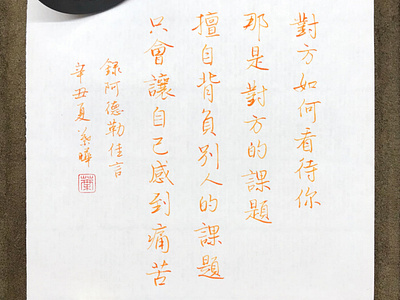 對方如何看待你
那是對方的課題
擅自背負別人的課題
只會讓自己感到痛苦
錄阿德勒佳言
辛丑夏 葉曄